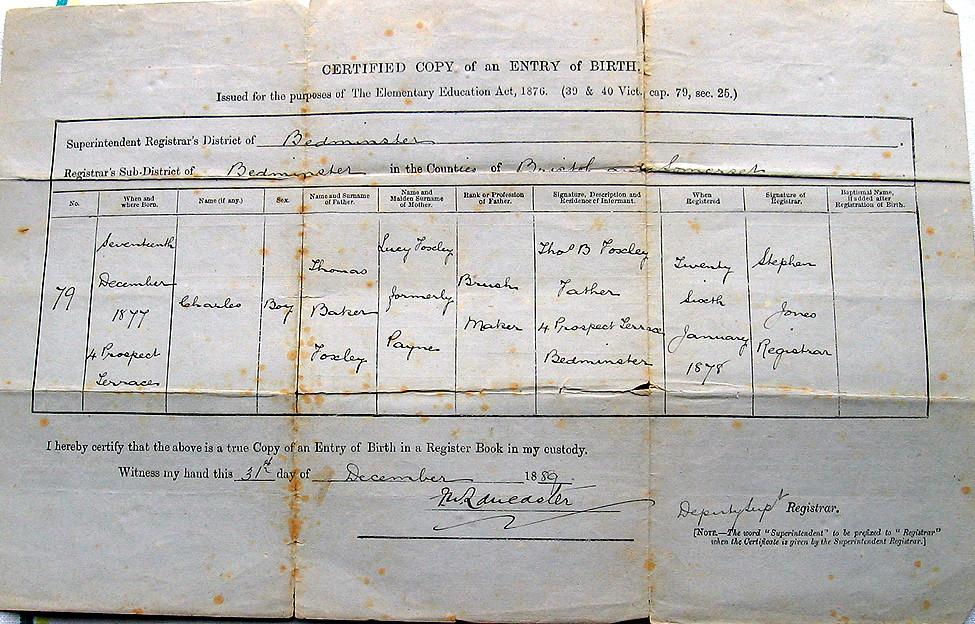 CERTIFIED COPY of an ENTRY of BIRTH.
Issued for the purposes of The Elementary Education Act, 1876. (39 & 40 Vict. cap. 79, sec. 25.)
Superintendent Registrar's District of Bedminster
Registrar's Sub-District of Bedminster in the Counties of Bristol and Somerset
No.
When and where Born.
Name (if any.)
Sex.
Name and Surname of Father.
Name and Maiden Surname of Mother.
Rank or Profession of Father.
Signature, Description and Residence of Informant.
When Registered
Signature of Registrar.
Baptismal Name, if added after Registration of Birth.
79
Seventeenth
December
1877
4 Prospect
Terraces
Charles
Boy
Thomas
Baker
Foxley
Lucy Foxley
formerly
Payne
Brush
Maker
Thos B Foxley
Father
4 Prospect Terrace
Bedminster
Twenty
Sixth
January
1878
Stephen
Jones
Registrar
I hereby certify that the above is a true Copy of an Entry of Birth in a Register Book in my custody.
Witness my hand this 31st day of December 1889.
Deputy Supt Registrar.
[NOTE.—The word "Superintendent" to be prefixed to "Registrar"
when the Certificate is given by the Superintendent Registrar.]